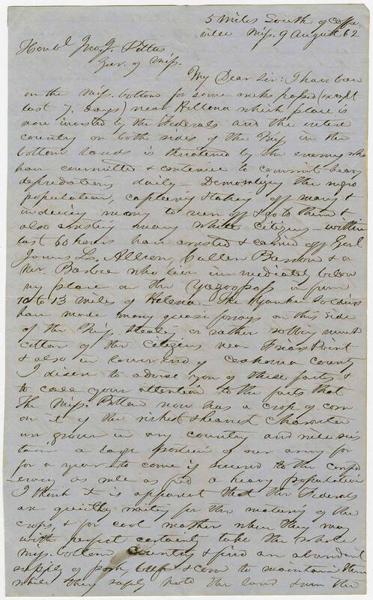 5 Miles South of Coffe
ville Miss. 9 August 62
Honbl Jno. J. Pettus
Gov. of Miss.
My Dear Sir: I have been
on the Miss. bottom for some weeks passed (except
last 7 days) near Hellena which place is
now invested by the Federals and the entire
country on both sides of the River in the
bottom lands is threatened by the enemy who
have committed & continue to commit heavy
depredations daily - Demoralizing the negro
population, capturing & taking off many &
inducing many to run off & go to them &
also arresting many white citizens - within
last 60 hours have arrested & carried off Genl
James L. Alcorn, Cullen & a
Mr. who live immediately below
my place on the Yazoopass in from
10 to 13 mile of Helena - The Yankee soldiers
have made many forays on this side
of the River stealing or rather robbing much
cotton of the citizens near Friars Point
& also in lower end of Coahoma County
I desire to advise you of these facts &
to call your attention to the facts that
the Miss. Bottom now has a crop of corn
on it of the richest & character
ever grown in any country and will sus
tain a large portion of our army for
for a year to come if secured to the confed
eracy as well as feed a heavy population
I think it is apparent that the Federals
are quietly waiting for the maturing of the
crops, & for cool weather when they may
with perfect certainty take the whole
Miss. bottom country & find an abundant
supply of pork beef & corn to maintain them
while they safely hold the land even the